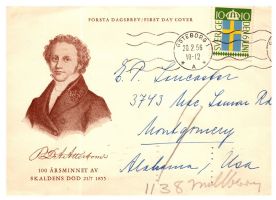 FÖRSTA DAGSBREV / FIRST DAY COVER
GÖTEBORG
20.2.56
10-12
A
SVERIGE
10 10
E. P. Lancaster
3743 Nrc. Luman Rd
Montgomery
Alabama, Usa
1138 Mulberry
100 ÅRSMINNET AV
SKALDENS DÖD 21/7 1855